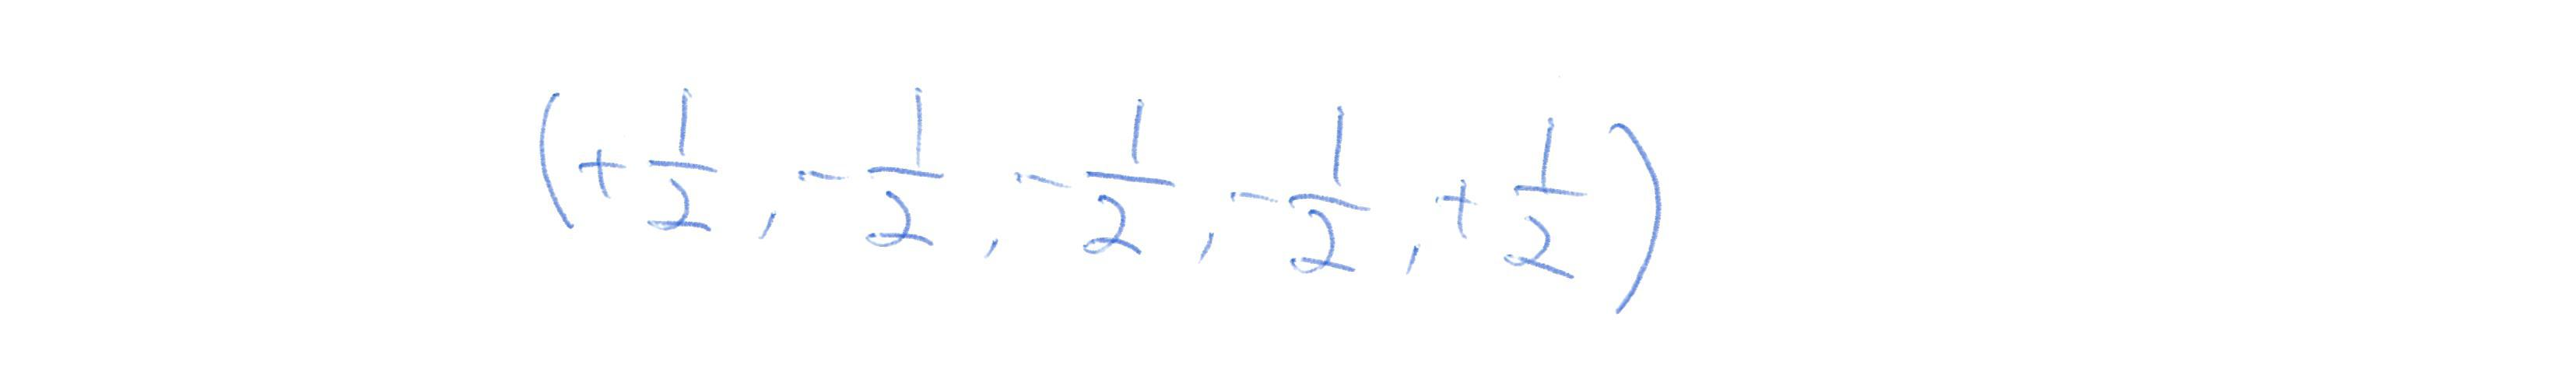 (+1/2, -1/2, -1/2, -1/2, +1/2)